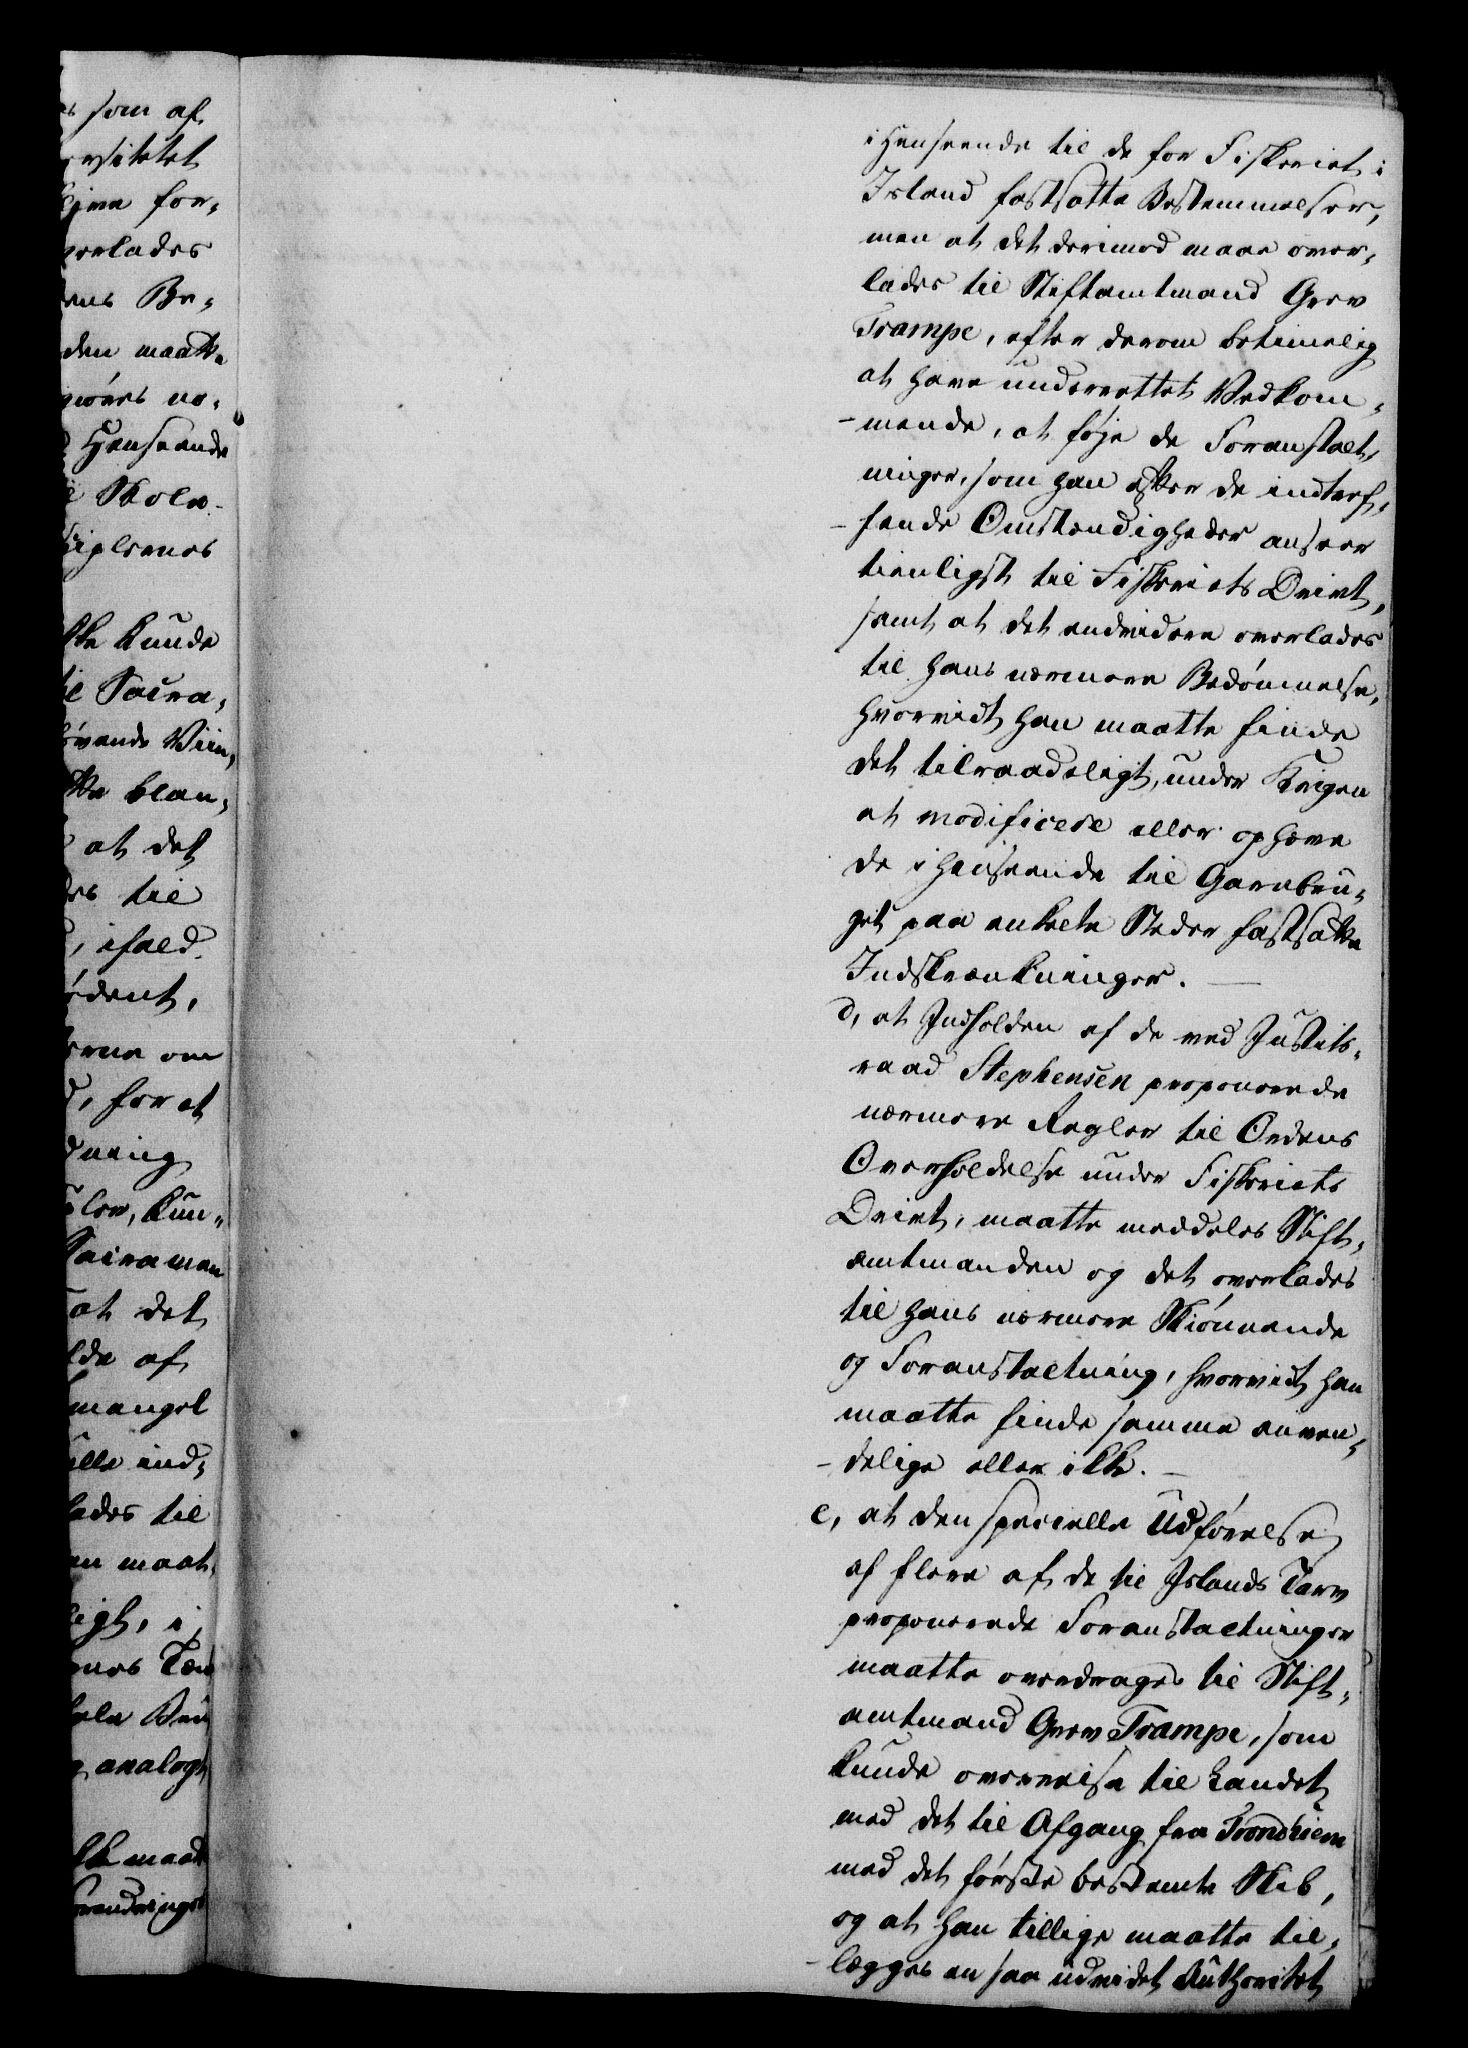 s som af
ersitetet
for-
verlades
ens Be-
den maatte
giøres no-
Henseende
Skole-
ciplernes
kke kunde
til Sacra-
øvende Viin,
tte blan-
at det
des til
, ifald
ødent,
erne om
d, for at
dning
pler, kun-
Sacramen
at det
lde af
mangel
ille ind-
lades til
en maat-
ligt, i
analogt
kke maatte
forandringer
i Henseende til de for Fiskeriet i
Island fastsatte Bestemmelser,
men at det derimod maae over-
lades til Stiftamtmand Grev
Trampe, efter derom betimelig
at have underrettet Vedkom-
mende, at føje de Foranstalt-
ninger, som han efter de indtref-
fende Omstændigheder anseer
tienligst til Fiskeriets Drivt,
samt at det endvidere overlades
til hans nærmere Bedømmelse,
hvorvidt han maatte finde
det tilraadeligt, under Krigen
at modificere eller ophæve
de i Henseende til Garnbru-
get paa enkelte Steder fastsatte
Indskrænkninger.
d, at Indholden af de ved Justits-
raad Stephensen proponerede
nærmere Regler til Ordens
Overholdelse under Fiskeriets
Drivt, maatte meddeles Stift-
amtmanden og det overlades
til hans nærmere Skiønnende
og Foranstaltning, hvorvidt han
maatte finde samme anven-
delige eller ikke.
e, at den specielle Udførelse
af flere af de til Islands Tarv
proponerede Foranstaltninger
maatte overdrages til Stift-
amtmand Grev Trampe, som
kunde overreise til Landet
med det til Afgang fra Trondhiem
med det første bestemte Skib,
og at han tillige maatte til-
lægges en saa udvidet Authoritet